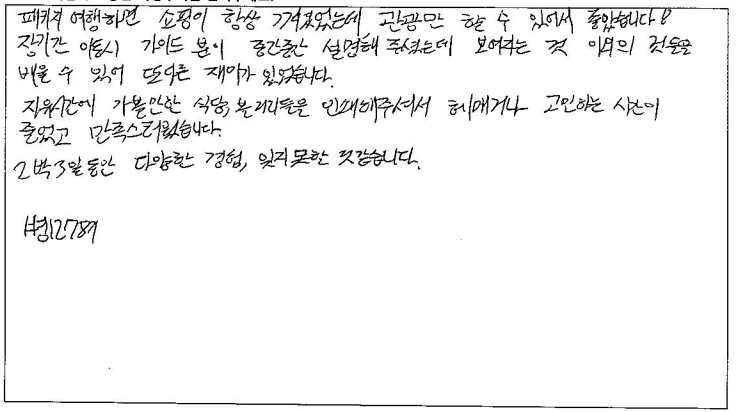 패키지 여행하면 쇼핑이 항상 껴있었는데 관광만 할 수 있어서 좋았습니다!
장기간 이동시 가이드 분이 중간중간 설명해 주셨는데 보여주는 것 이외의 것들을
배울 수 있어 또다른 재미가 있었습니다.
자유시간에 가볼만한 식당, 볼거리들을 인쇄해주셔서 헤매거나 고민하는 시간이
줄었고 만족스러웠습니다.
2박3일동안 다양한 경험, 잊지 못할 것 같습니다.